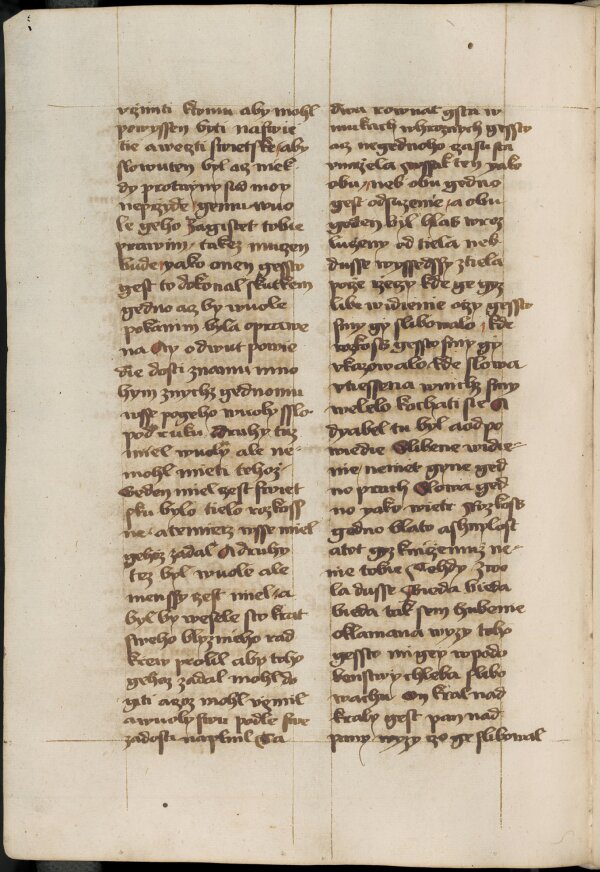 vziniti ktomu aby mohl
powyssen byti naswie
tie a wezti swietske aby
slowuten byl az niek
dy protiwny sud moy
neprzyde gemu wuo
le geho zagistet tobie
prawim takez muzen
bude yako onen gessto
gest to dokonal skutkem
gedno az by wuole
pokanim byla oprawe
na Ay o dwut powie
die dosti znamu mno
hym znychz gednomu
wsse pogeho wuoly sslo
pod ruku druhy tuz
miel wuoly ale ne
mohl mieti tehoz
Geden miel zest swiet
sku bylo tielo rozkoss
ne a temierz wsse miel
gehoz zadal A druhy
tez byl wuole ale
menssy zest miel a
byl by wesele sto krat
sweho blyznieho rad
krew prolil aby toho
gehoz zadal mohl do
giti a zoz mohl vzinil
a wuoly swu podle swe
zadosti naplnil Ta
dwa rownat gsta w
mukach whroznych gessto
az negednoho zasu sta
vmrzela wssak ten yako
obu neb obu gedno
gest odsuzenie a obu
geden byl hlas wroz
luzeny od tiela neb
dusse wyssedssy ztiela
poze rzezy kde ge gyz
libe widienie ozy gessto
smy gy slibowalo kde
rozkoss gessto smy gy
vkazowalo kde slowa
vtiessena wnichz smy
welelo kochati sie A
dyabel tu byl a od po
wiedie Slibene widie
nie neniet gyne ged
no prach Slowa ged
no yako wietr rozkoss
gedno blato a shnylost
atot gyz kniczemuz ne
nie tobie Tehdy zwo
la dusse Bieda bieda
bieda tak sem hubenie
oklamana wyzy toho
gessto mi gey wpodo
benstwy chleba slibo
wachu On kral nad
kraly gest pan nad
pany wyzy zo ge slibowal